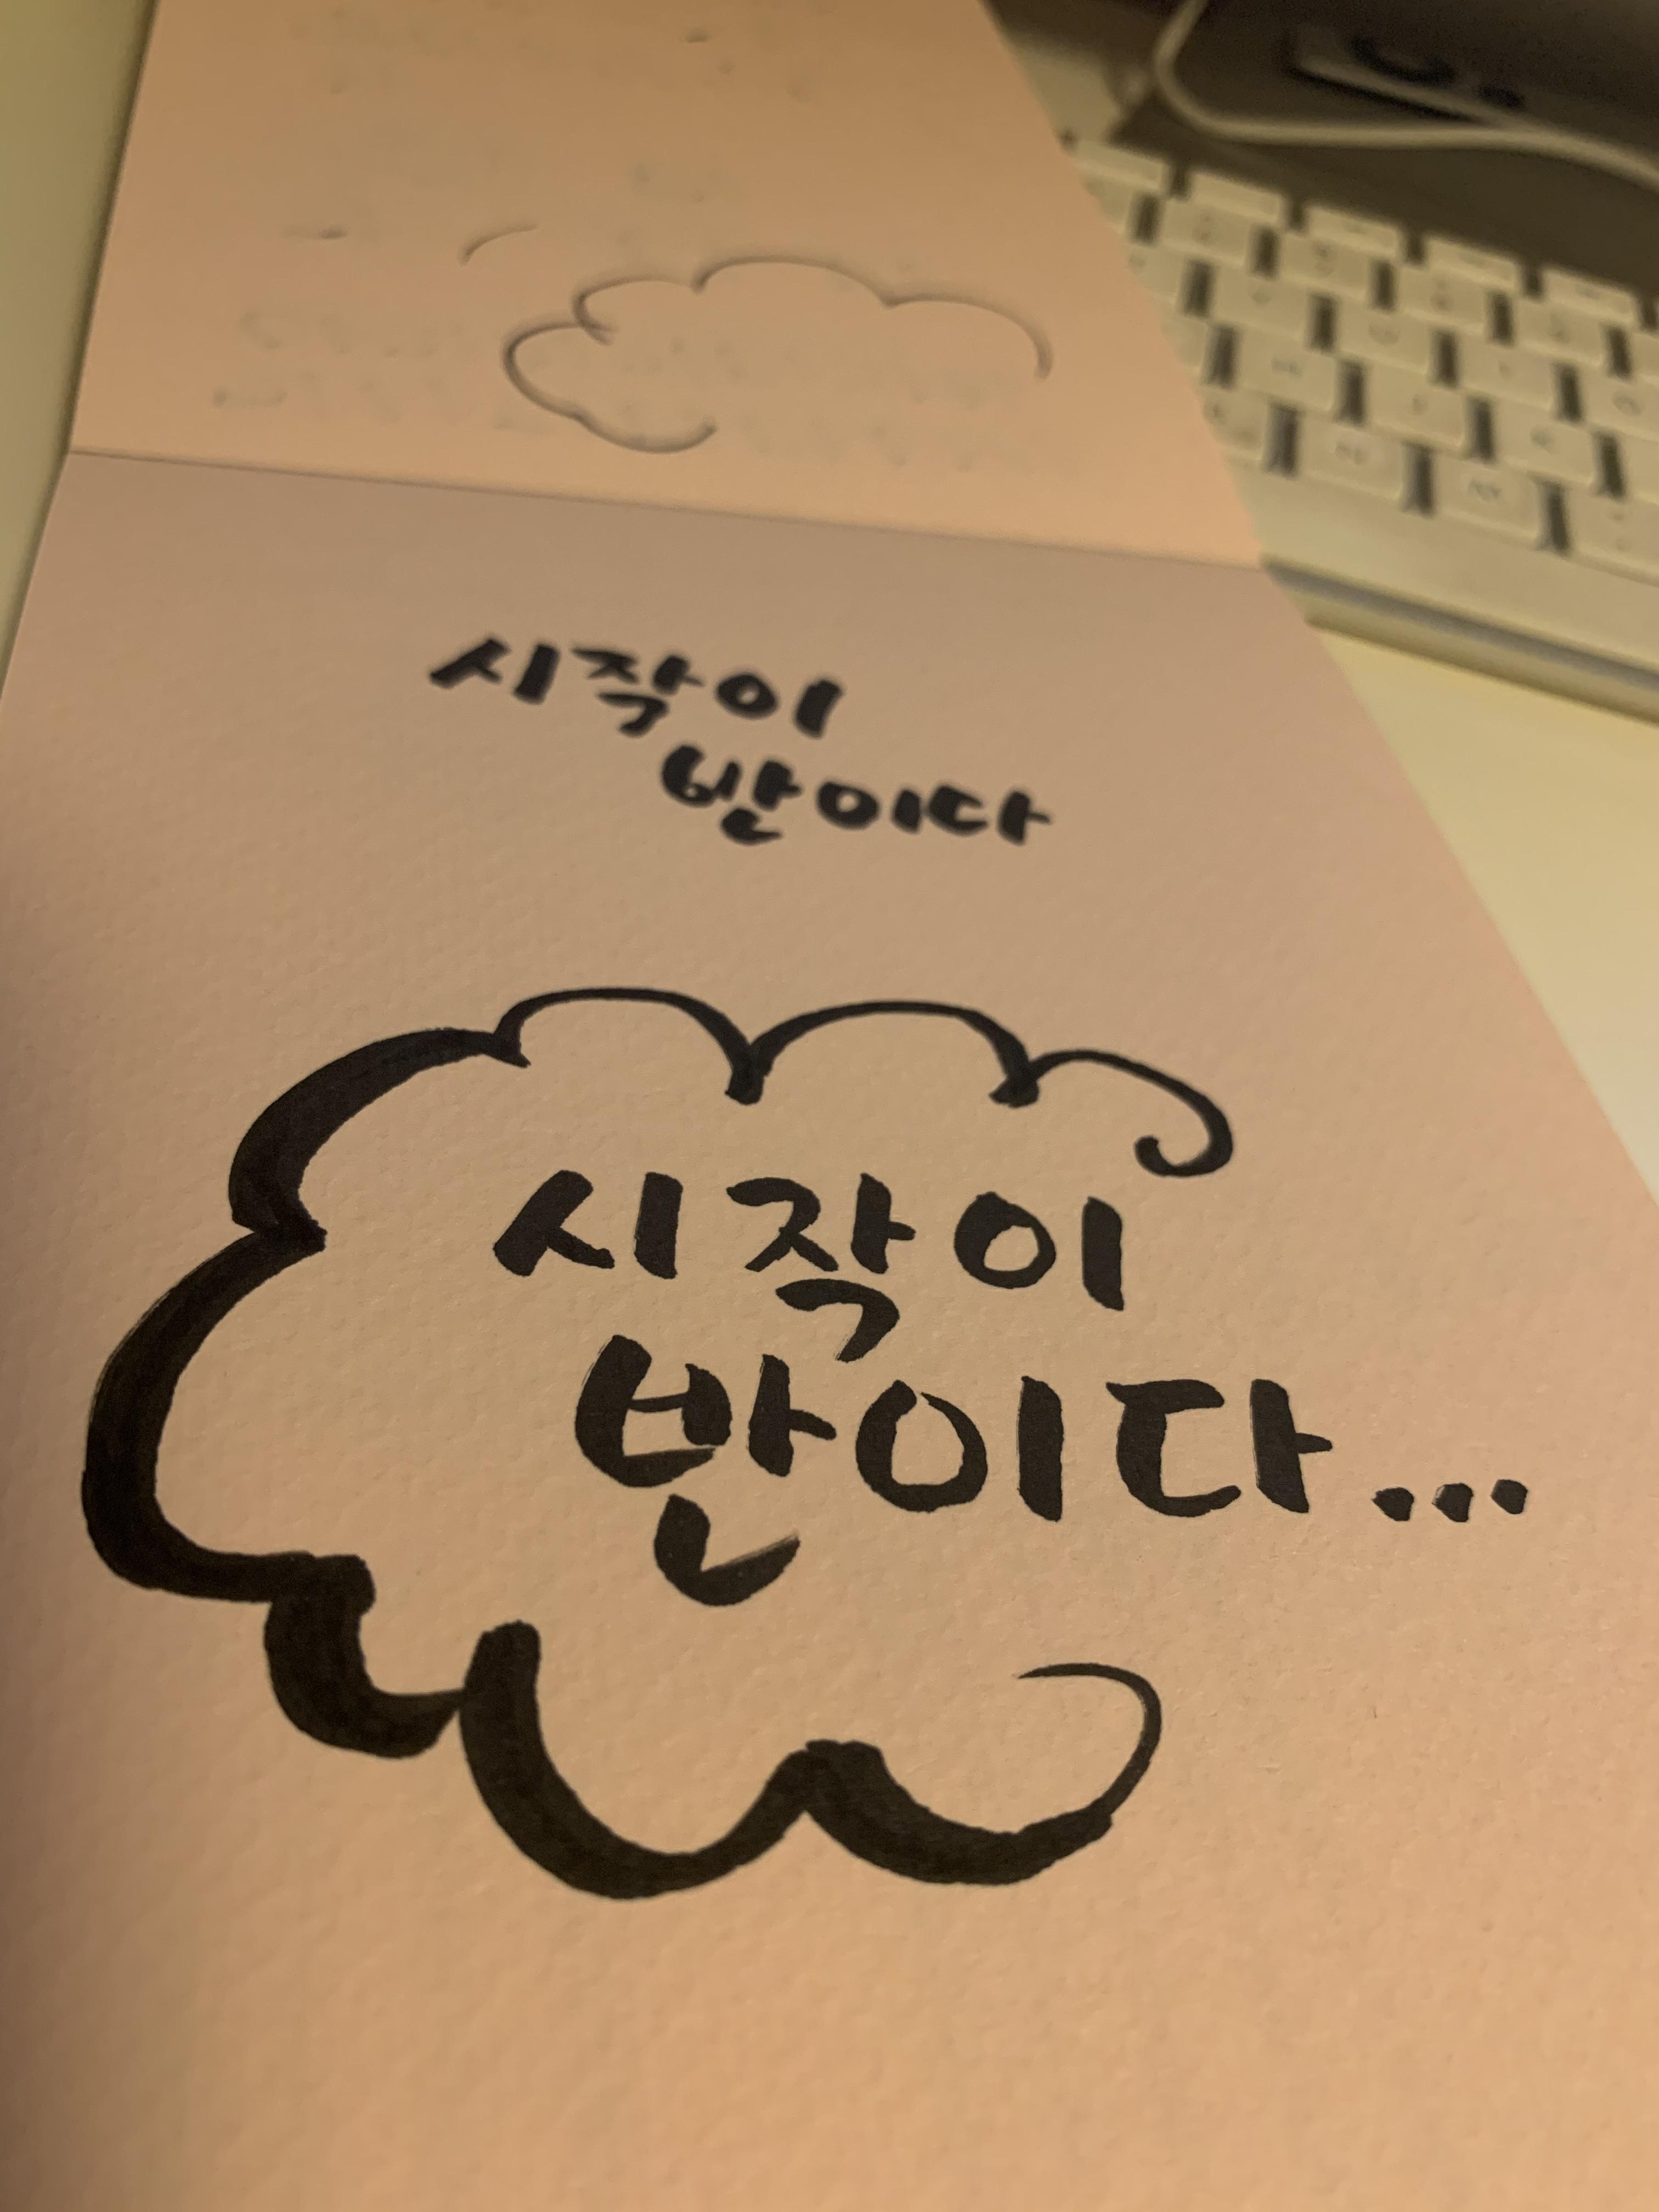 시작이
반이다
시작이
반이다...